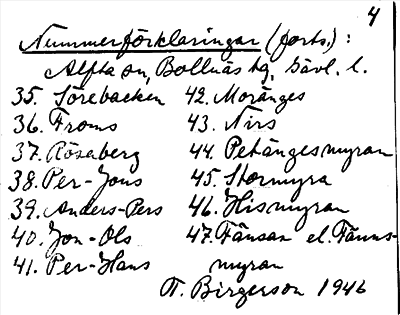 4
Nummerförklaringar (forts.):
Alfta sn, Bollnäs tg, Gävl. l.
35. Sörebacken 42. Moränges
36. Froms 43. Nirs
37. Rösaberg 44. Petängesmyran
38. Per-Jons 45. Stormyra
39. Anders-Pers 46. Hismyran
40. Jon-Ols 47. Fänsan el. Fänns-
41. Per-Hans myran
Birgerson 1946